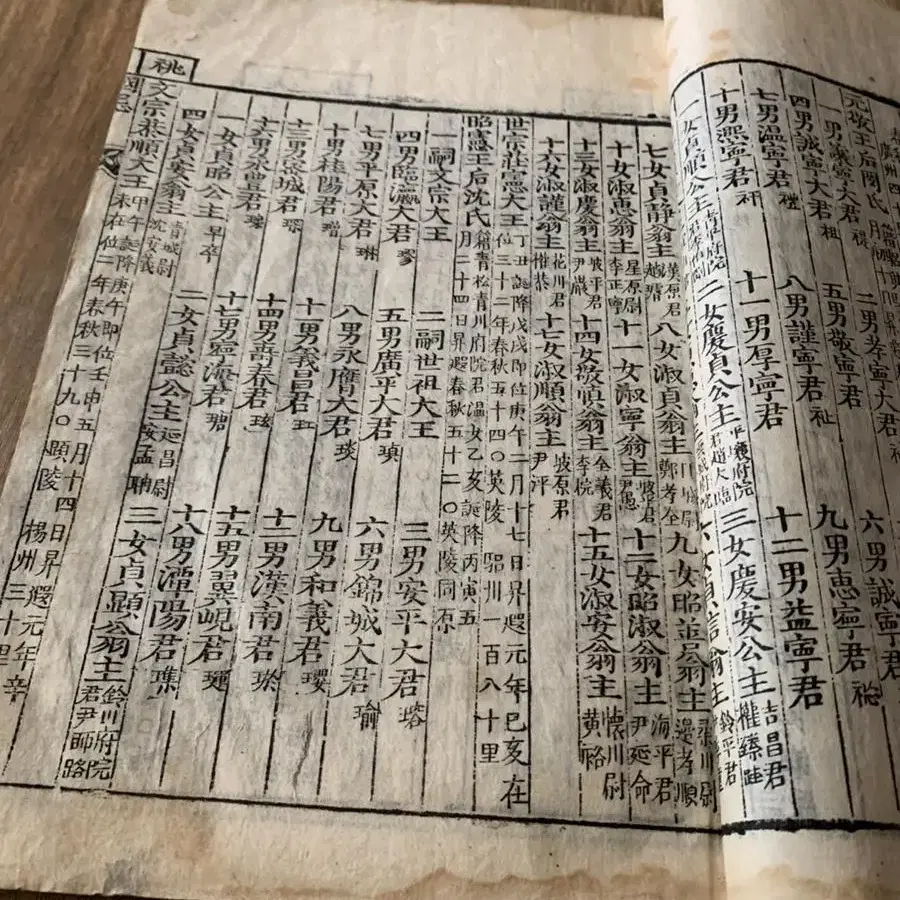 元敬王后閔氏
一男讓寧大君 禔 二男孝寧大君
四男誠寧大君 五男敬寧君 六男諴寧君
七男溫寧君 八男謹寧君 九男惠寧君
十男熙寧君 十一男厚寧君 十二男益寧君
一女貞順公主 二女慶貞公主 平壤府院君趙大臨 三女慶安公主 吉昌君權
七女貞靜翁主 漢原君趙 八女淑貞翁主 尉鄭孝全 九女昭善翁主 川尉邊孝順
十女淑惠翁主 星原尉李正寧 十一女淑寧翁主 君尹愚 十二女昭淑翁主 海平君尹延命
十三女淑慶翁主 坡平君尹巖 十四女敬愼翁主 全義君李梡 十五女淑安翁主 懷川尉黃裕
十六女淑謹翁主 花川君權恭 十七女淑順翁主 坡原君尹泙
世宗莊憲大王 丁丑誕降戊戌即位庚午二月十七日昇遐元年己亥在位三十二年春秋五十四○英陵 驪州一百八十里
昭憲王后沈氏 籍青松青川府院君溫女乙亥誕降丙寅五月二十四日昇遐春秋五十二○英陵同原
一嗣文宗大王 二嗣世祖大王 三男安平大君 瑢
四男臨瀛大君 璆 五男廣平大君 六男錦城大君 瑜
七男平原大君 琳 八男永膺大君 琰 九男和義君 瓔
十男桂陽君 璔 十一男義昌君 玒 十二男漢南君
十三男密城君 琛 十四男壽春君 玹 十五男翼峴君
十六男永豊君 瑔 十七男寧海君 瑭 十八男潭陽君 璖
一女貞昭公主 早卒 二女貞懿公主 延昌尉安孟聃 三女貞顯翁主 鈴川府院君尹師路
四女貞安翁主 青城尉沈安義
文宗恭順大王 甲午誕降庚午即位壬申五月十四日昇遐元年辛未在位二年春秋三十九○顯陵 楊州三十里
祧
國忌